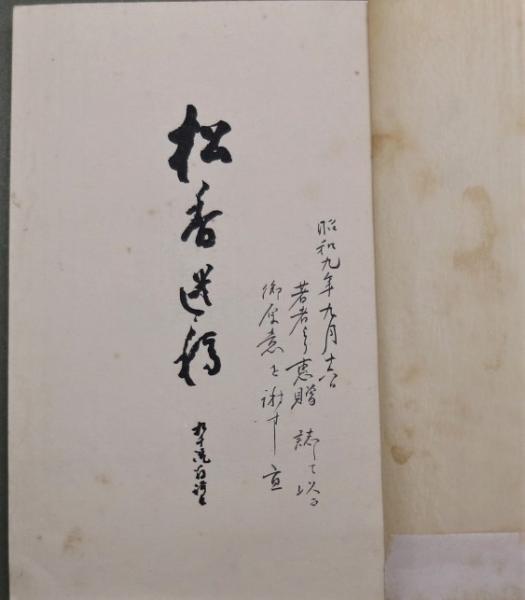 昭和九年九月十六日
著者ゟ恵贈 誌して以て
御厚意を謝す
松香遺稿